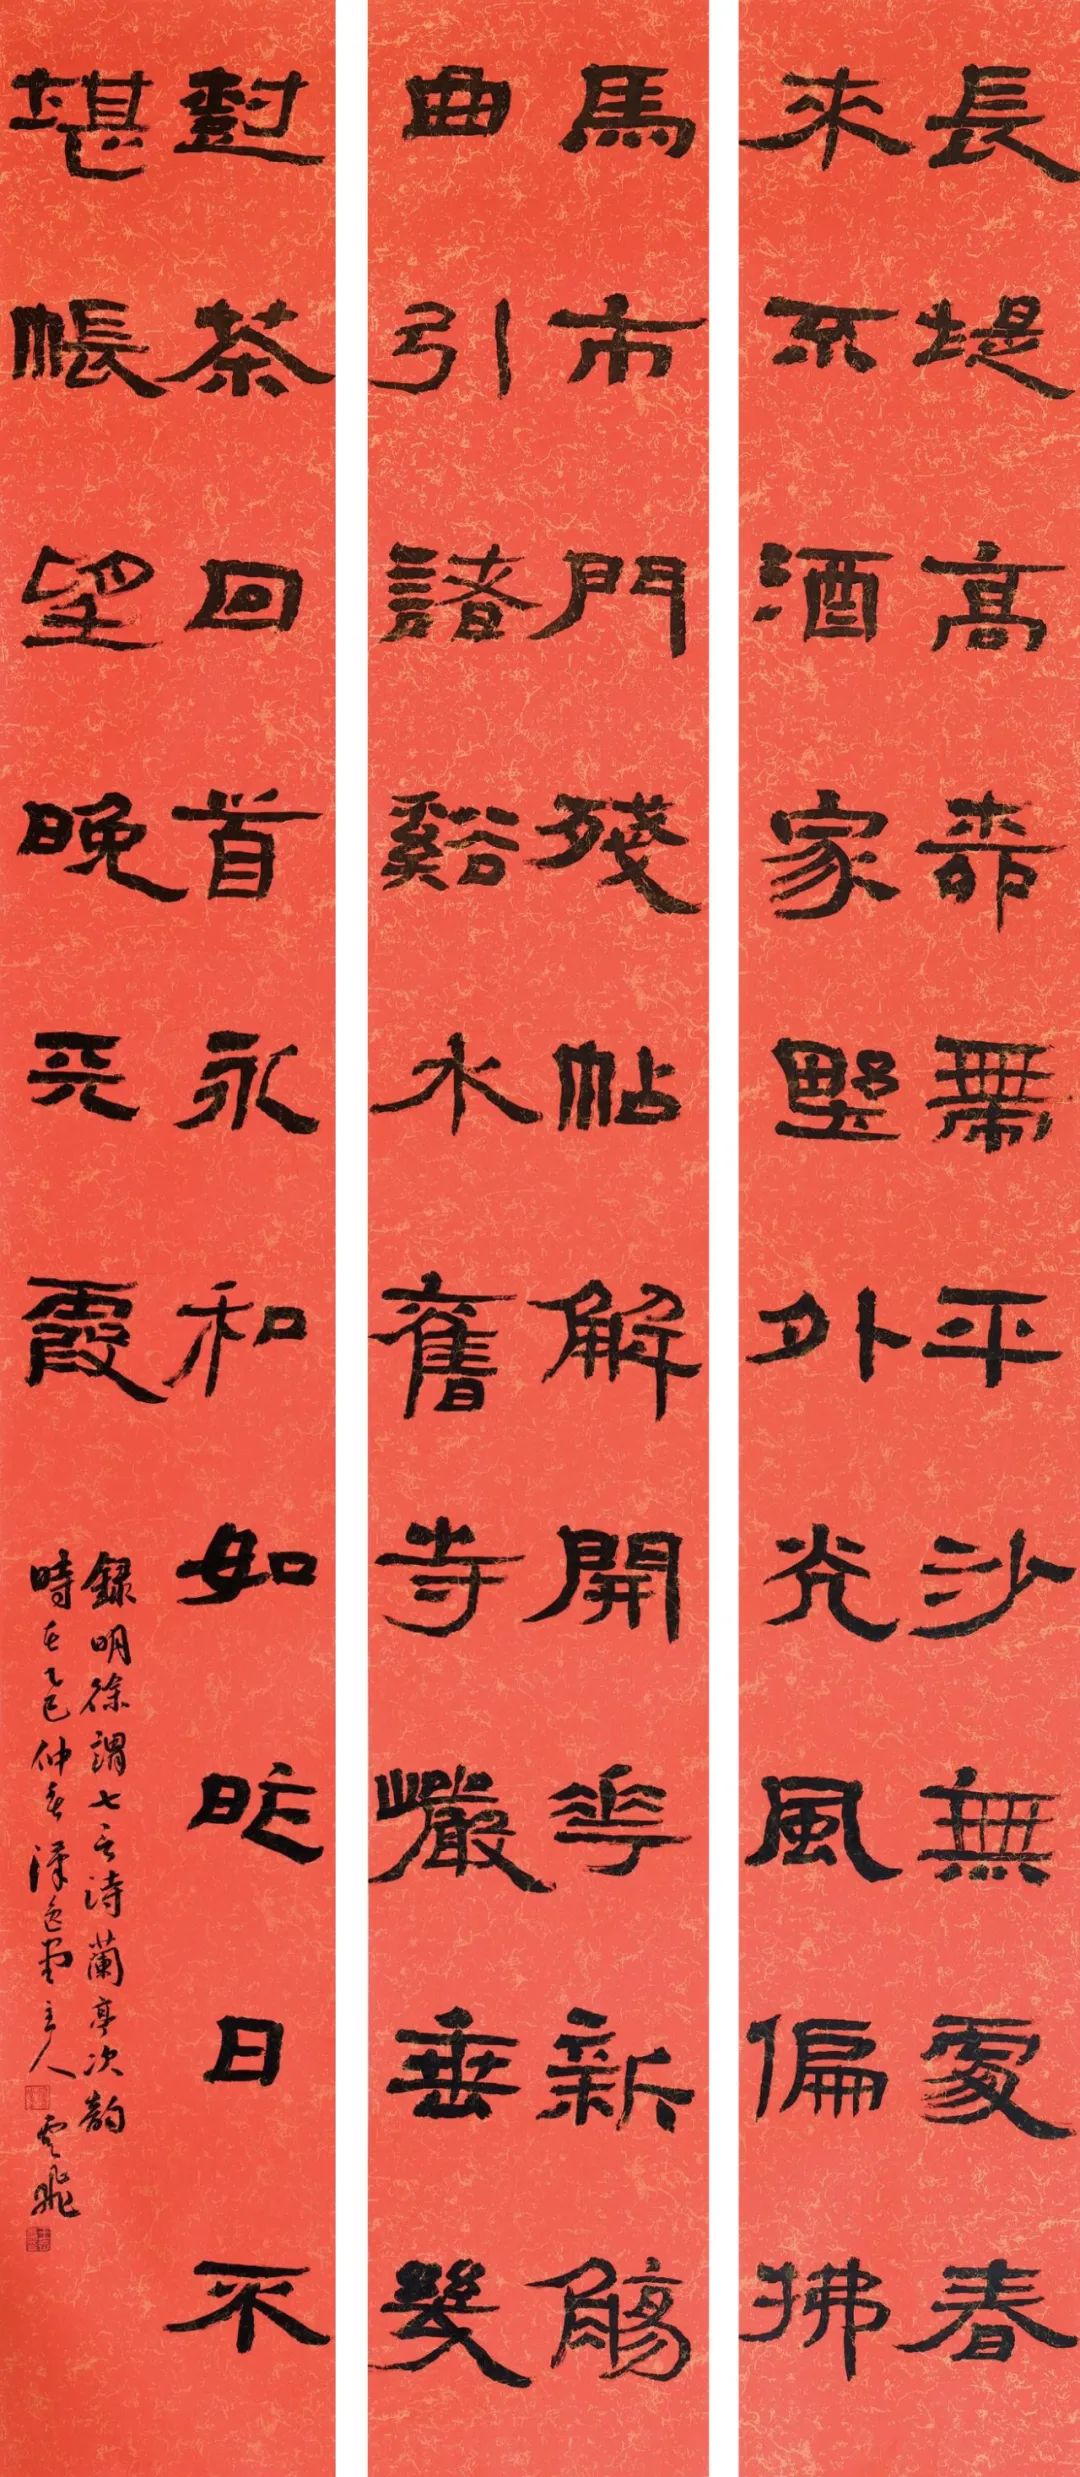 長堤高柳帶平沙無處春
來不酒家野外光風偏拂
馬市門殘帖解開華新觴
曲引諸谿水舊寺巖垂幾
尌茶回首永和如昨日不
堪帳望晚天霞
錄明徐謂七言詩蘭亭次韵
時在乙巳仲春漢邑堂主人雲飛